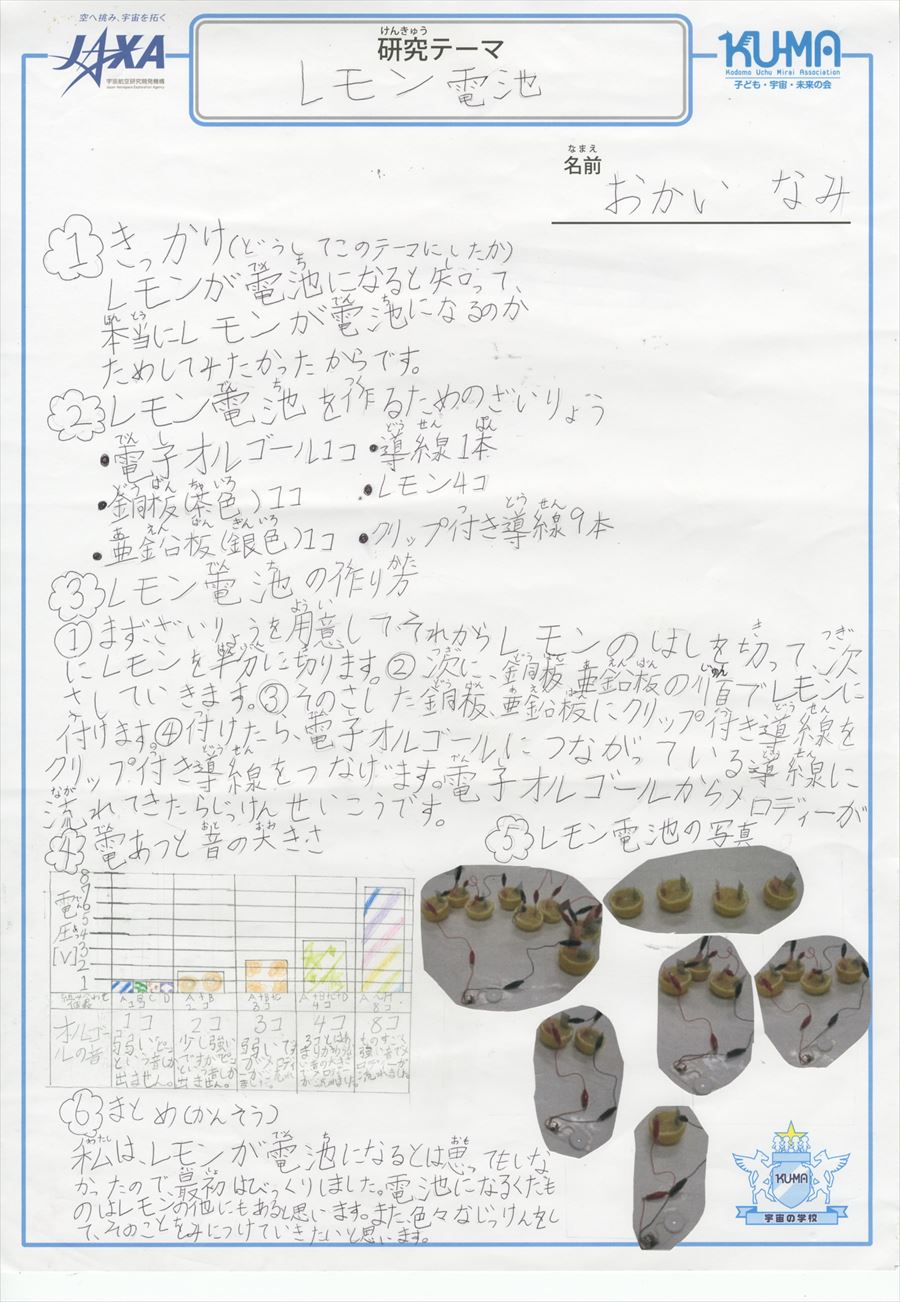 空へ挑み、宇宙を拓く
JAXA
宇宙航空研究開発機構
Japan Aerospace Exploration Agency
けんきゅう
研究テーマ
レモン電池
KU-MA
Kodomo Uchu Mirai Association
子ども・宇宙・未来の会
なまえ
名前
おかい なみ
1 きっかけ(どうしてこのテーマにしたか)
レモンが電池になると知って、
本当にレモンが電池になるのか
ためしてみたかったからです。
2 レモン電池を作るためのざいりょう
・電子オルゴール1コ ・導線1本
・銅板(茶色)1コ ・レモン4コ
・亜鉛板(銀色)1コ ・クリップ付き導線9本
3 レモン電池の作り方
①まず、ざいりょうを用意して、それからレモンのはしを切って、次
にレモンを半分に切ります。②次に、銅板、亜鉛板の順でレモンに
さしていきます。③そのさした銅板、亜鉛板にクリップ付き導線を
付けます。④付けたら、電子オルゴールにつながっている導線に
クリップ付き導線をつなげます。電子オルゴールからメロディーが
流れてきたらじっけんせいこうです。
4 電あつと音の大きさ
5 レモン電池の写真
8
7
6
5
4
3
2
1
電圧[V]
A B C D A+B
1コ 2コ 3コ 4コ 8コ
オルゴールの音
1コ 2コ 3コ 4コ 8コ
6 まとめ(かんそう)
私は、レモンが電池になるとは思ってもいな
かったので、最初はびっくりしました。電池になるくだも
のはレモンの他にもあると思います。また、色々なじっけんをし
て、そのことをみにつけていきたいと思います。
KU-MA
宇宙の学校